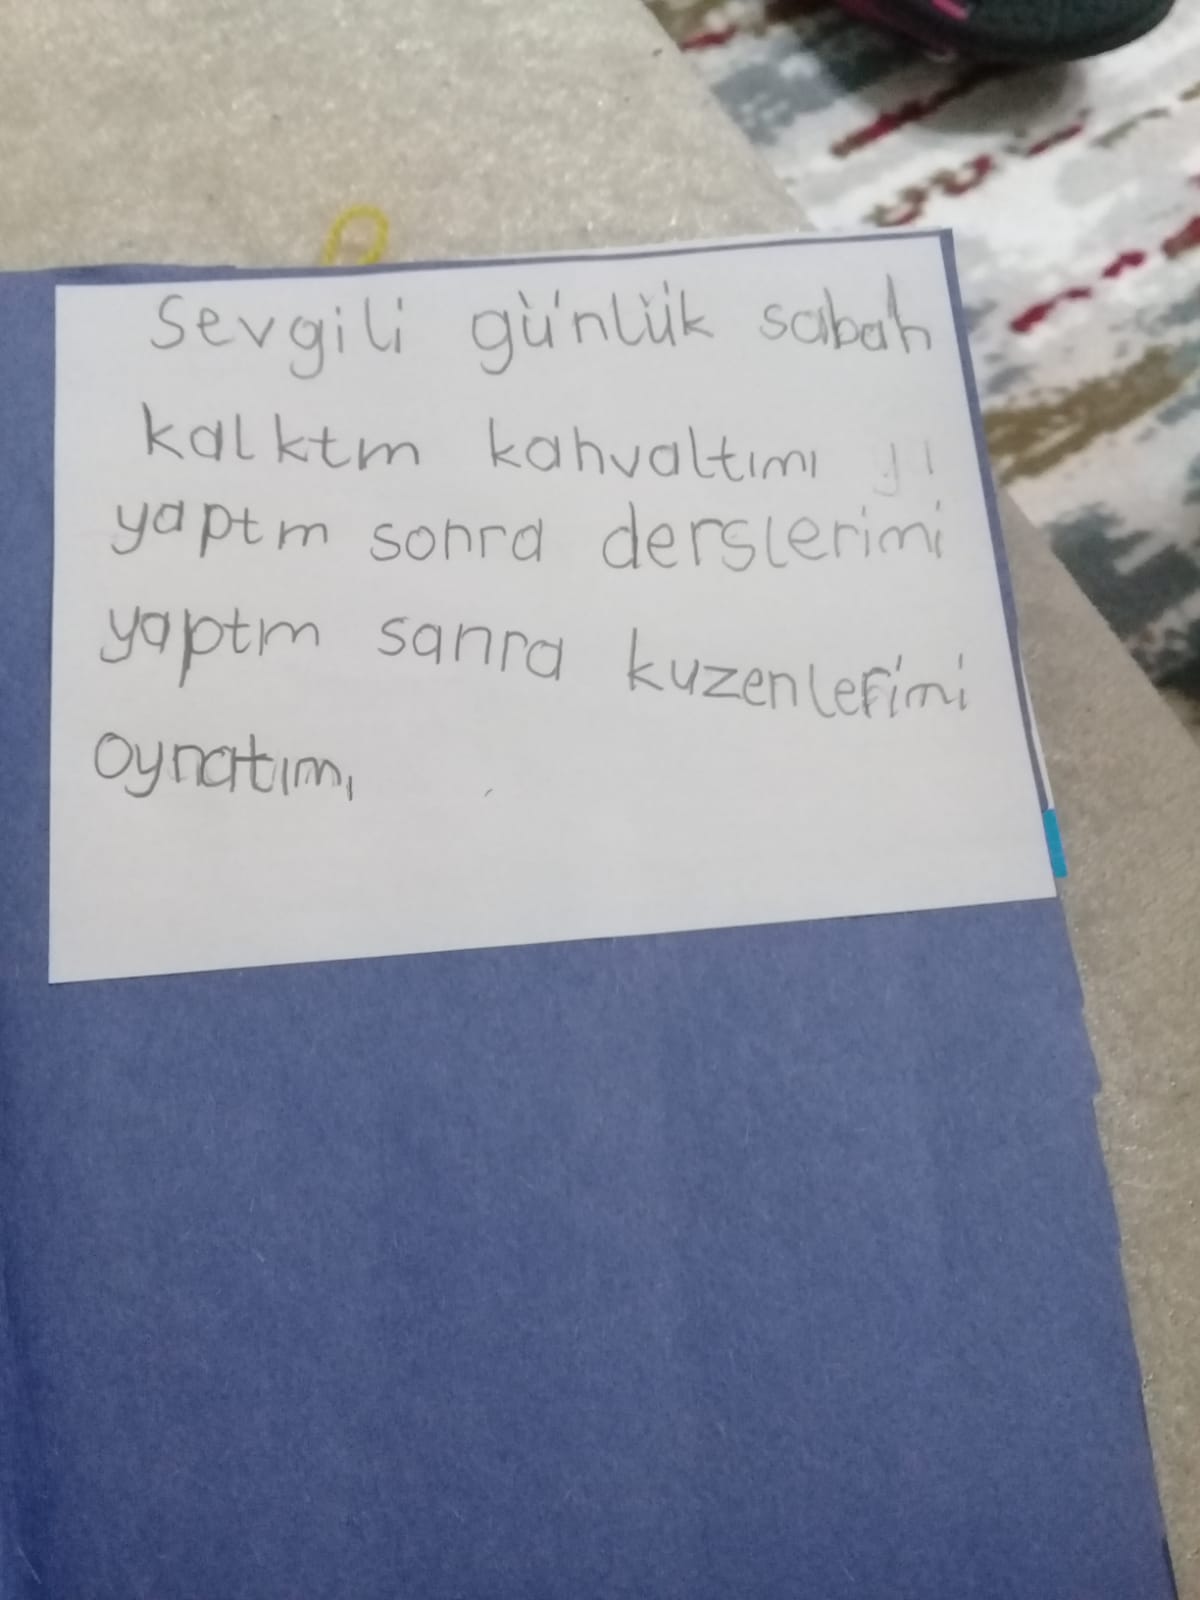 Sevgili günlük sabah
kalktm kahvaltımı
yaptm sonra derslerimi
yaptım sanra kuzenlerimi
oynatım,